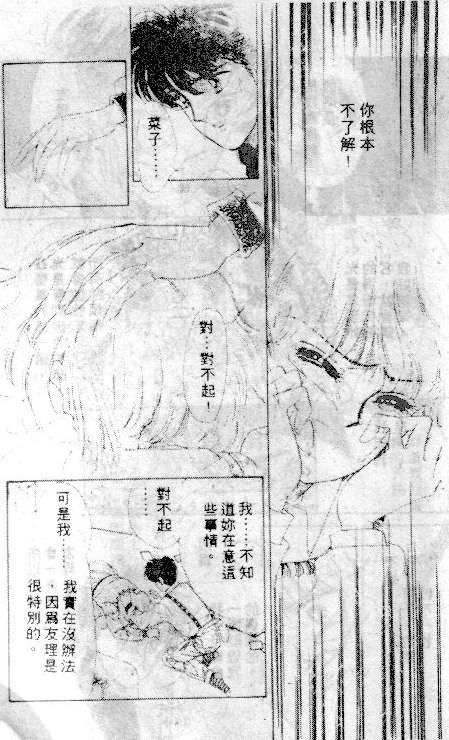 你根本
不了解！
菜子……
對…對不起！
我……不知
道妳在意這
些事情。
對不起
……
可是我……
我實在沒辦法
，因為友理是
很特別的。